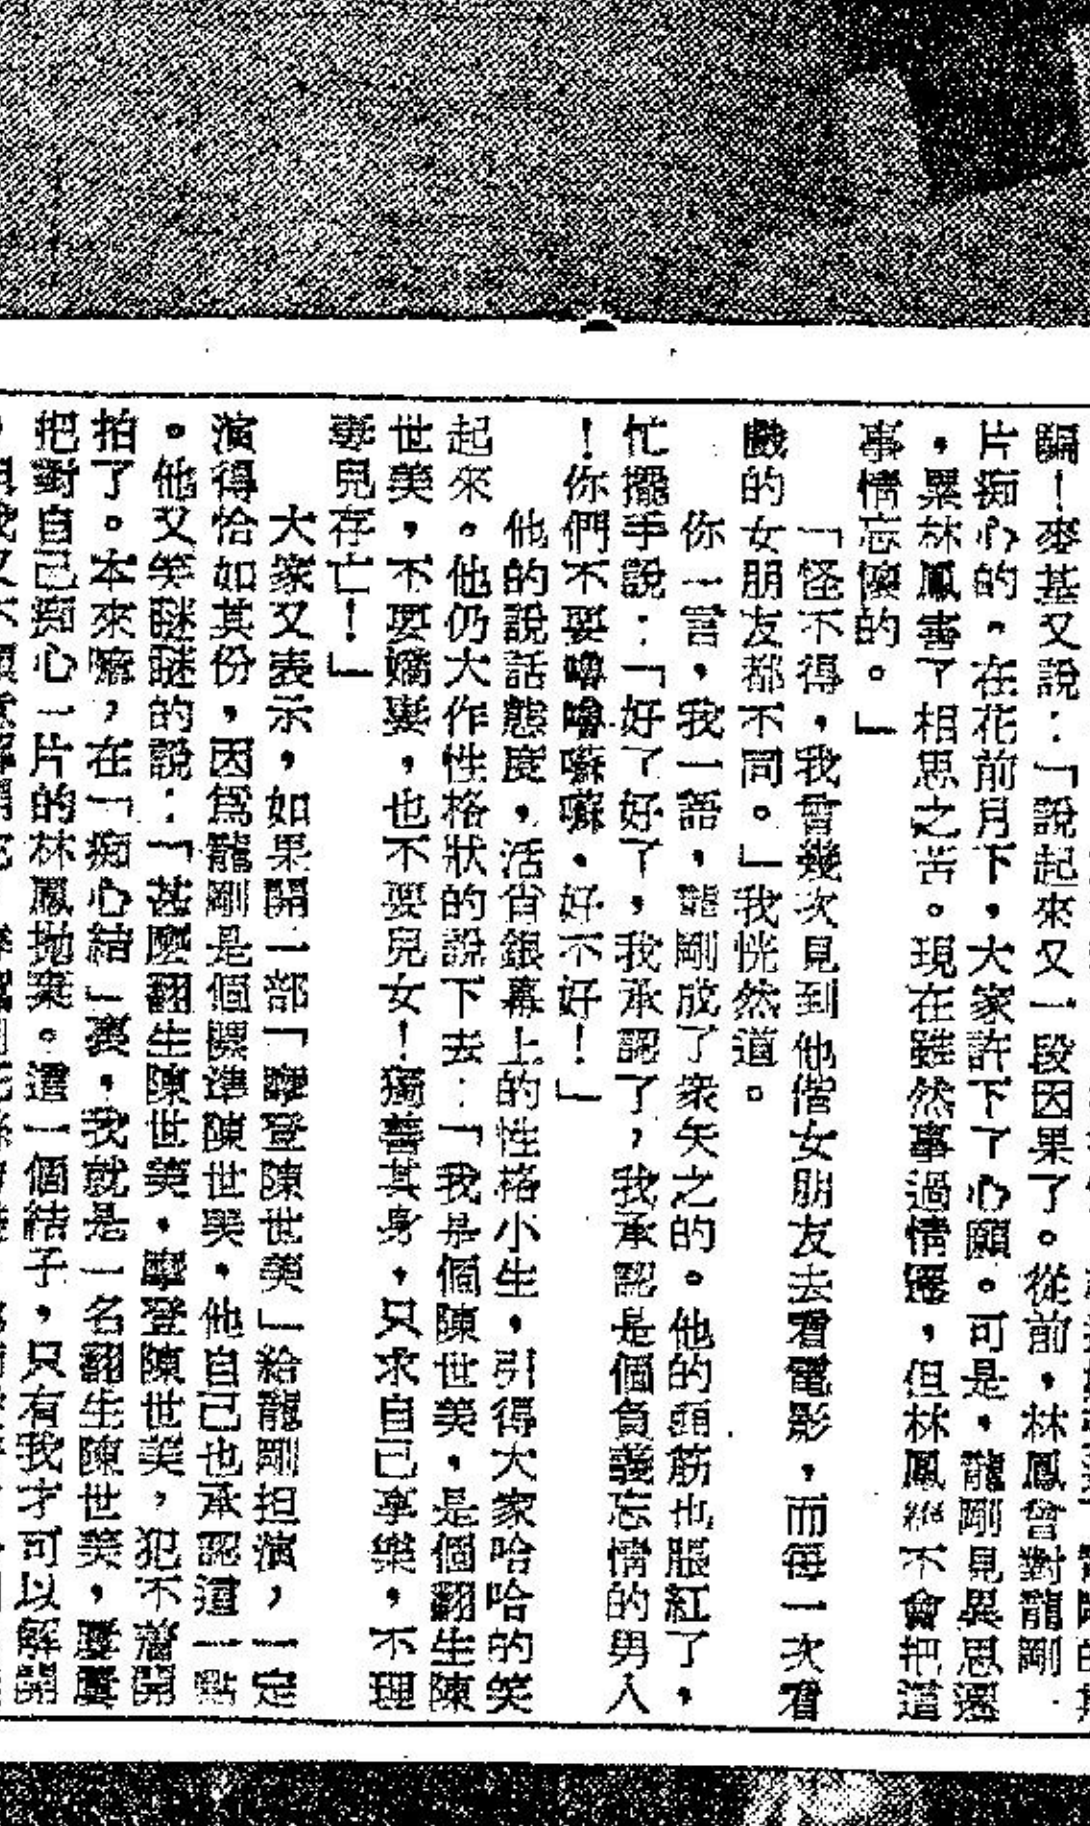 騙！麥基又說：「說起來又一段因果了。從前，林鳳曾對龍剛
片痴心的。在花前月下，大家許下了心願。可是，龍剛見異思遷
，累林鳳害了相思之苦。現在雖然事過情遷，但林鳳絕不會把這
事情忘懷的。」
「怪不得，我曾幾次見到他偕女朋友去看電影，而每一次看
戲的女朋友都不同。」我恍然道。
你一言，我一語，龍剛成了衆矢之的。他的頭筋也脹紅了，
忙擺手說：「好了好了，我承認了，我承認是個負義忘情的男人
！你們不要嚕嚕囌囌，好不好！」
他的說話態度，活省銀幕上的性格小生，引得大家哈哈的笑
起來。他仍大作性格狀的說下去：「我是個陳世美，是個翻生陳
世美，不要嬌妻，也不要兒女！獨善其身，只求自己享樂，不理
妻兒存亡！」
大家又表示，如果開一部「摩登陳世美」給龍剛担演，一定
演得恰如其份，因爲龍剛是個標準陳世美，他自己也承認這一點
。他又笑瞇瞇的說：「甚麼翻生陳世美，摩登陳世美，犯不着開
拍了。本來嘛，在「痴心結」裏，我就是一名翻生陳世美，
把對自己痴心一片的林鳳拋棄。這一個結子，只有我才可以解開